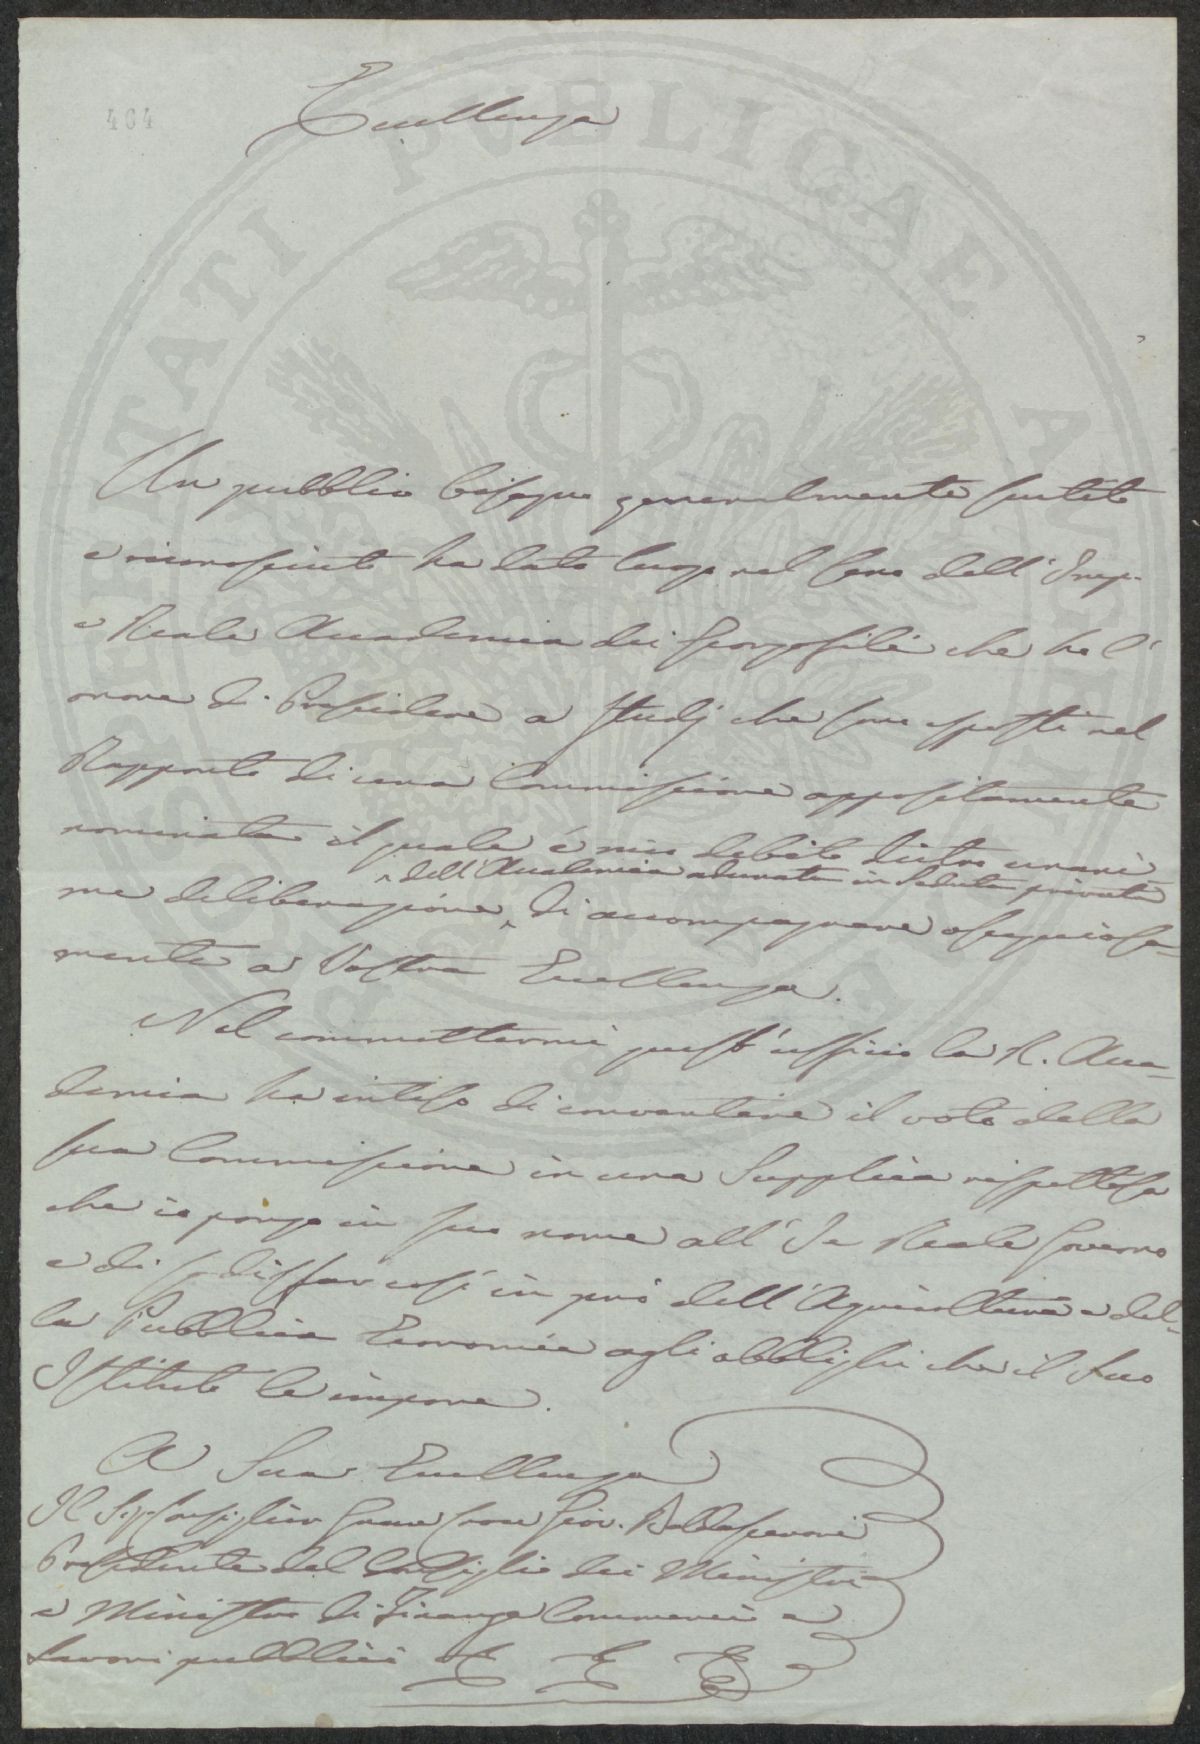 464
Eccellenza
PROSPERITATI PUBLICAE AUGENDAE
Un pubblico bisogno generalmente sentito
e riconosciuto ha dato luogo nel seno dell' Imp.
e Reale Accademia dei Georgofili che ho l'
onore di Presiedere a studj che sono esposti nel
Rapporto di una Commissione appositamente
nominata il quale è mio debito dietro unani
me deliberazione di accompagnare ossequiosa=
dell'Accademia adunata in seduta privata
mente a Vostra Eccellenza.
Nel commettermi quest'ufficio la R. Acca=
demia ha inteso di convertire il voto della
sua Commissione in una Supplica rispettosa
che io porgo in suo nome all' I. e Reale Governo
e di sodisfar così in prò dell'Agricoltura e del=
la Pubblica Economia agli obblighi che il suo
Istituto le impone.
A Sua Eccellenza
Il Sig. Consigliere Gran Croce Giov. Baldasseroni
Presidente del Consiglio dei Ministri
e Ministro di Finanze Commercio e
Lavori pubblici